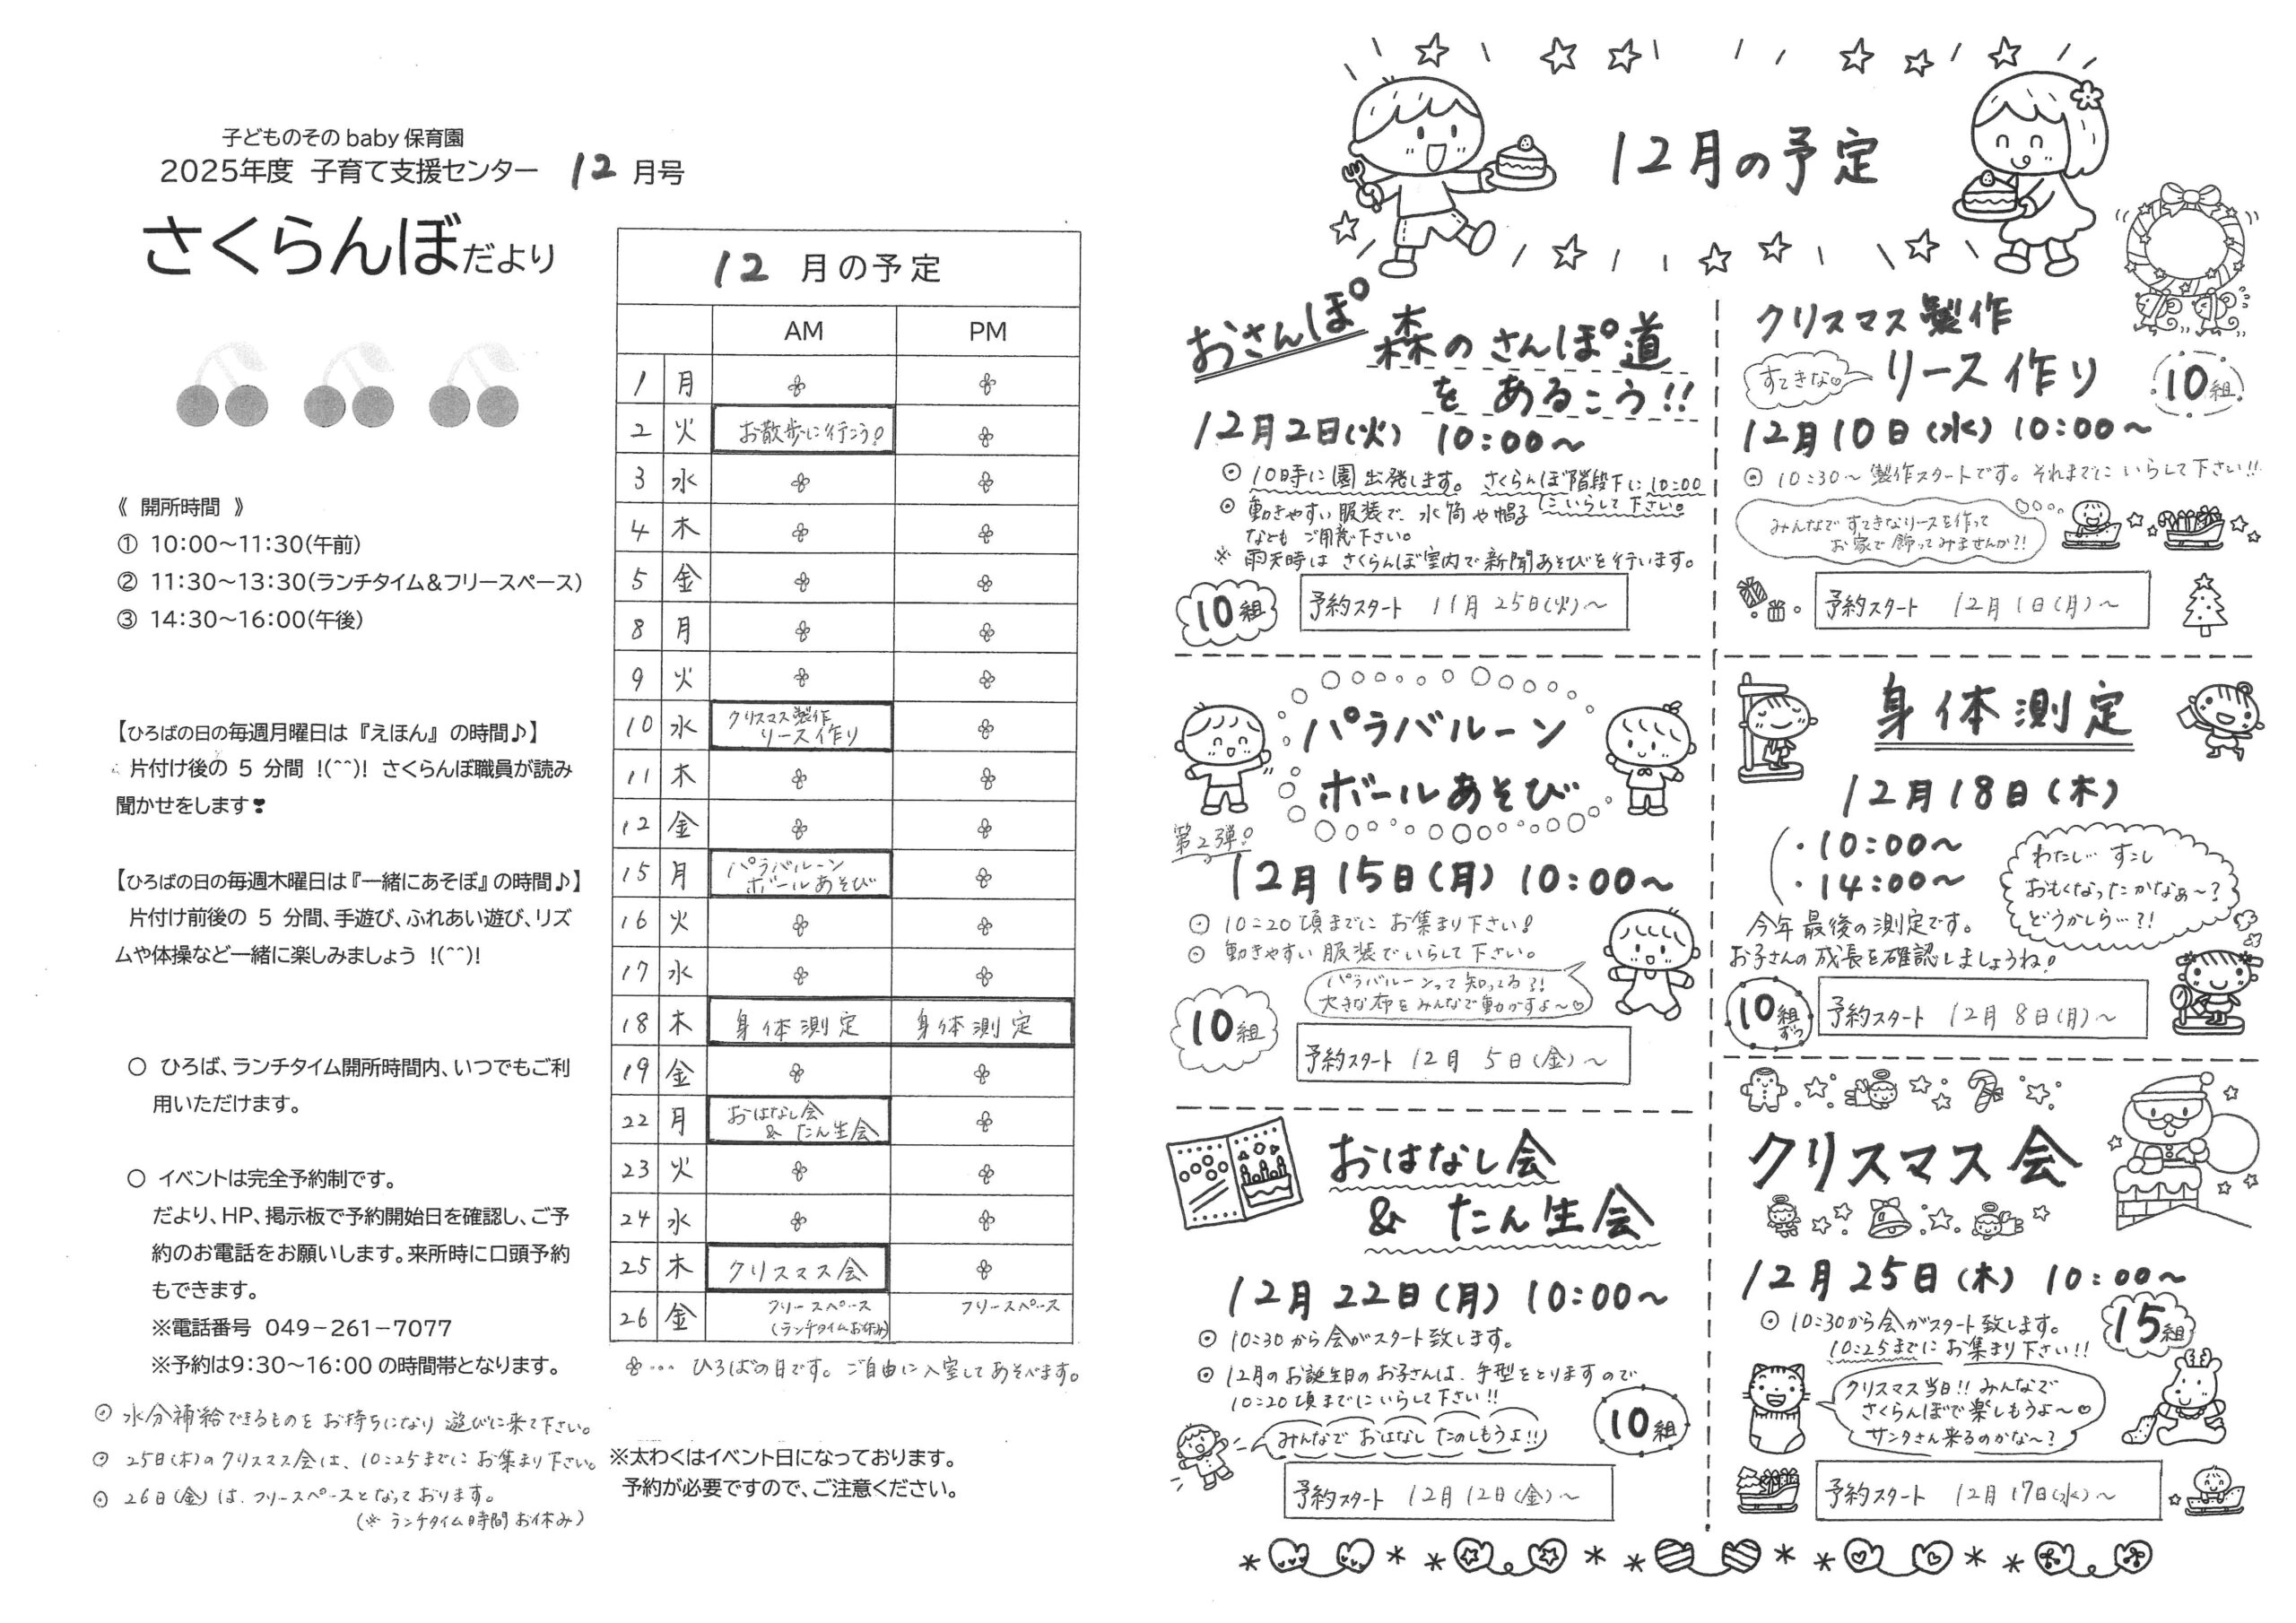 子どものそのbaby保育園
2025年度 子育て支援センター 12月号
さくらんぼだより
《 開所時間 》
① 10:00～11:30(午前)
② 11:30～13:30(ランチタイム＆フリースペース)
③ 14:30～16:00(午後)
【ひろばの日の毎週月曜日は『えほん』の時間♪】
片付け後の 5 分間 !(^^)! さくらんぼ職員が読み
聞かせをします❣
【ひろばの日の毎週木曜日は『一緒にあそぼ』の時間♪】
片付け前後の 5 分間、手遊び、ふれあい遊び、リズ
ムや体操など一緒に楽しみましょう !(^^)!
○ ひろば、ランチタイム開所時間内、いつでもご利
用いただけます。
○ イベントは完全予約制です。
だより、HP、掲示板で予約開始日を確認し、ご予
約のお電話をお願いします。来所時に口頭予約
もできます。
※電話番号 049－261－7077
※予約は9:30～16:00の時間帯となります。
◎ 水分補給できるものをお持ちになり遊びに来て下さい。
◎ 25日(木)のクリスマス会は、10:25までにお集まり下さい。
◎ 26日(金)は、フリースペースとなっております。
(※ランチタイム時間お休み)
12 月の予定
AM PM
1 月
2 火 お散歩に行こう!
3 水
4 木
5 金
8 月
9 火
10 水 クリスマス製作
リース作り
11 木
12 金
15 月 パラバルーン
ボールあそび
16 火
17 水
18 木 身体測定 身体測定
19 金
22 月 おはなし会
& たん生会
23 火
24 水
25 木 クリスマス会
26 金 フリースペース フリースペース
(ランチタイムお休み)
…ひろばの日です。ご自由に入室してあそべます。
※太わくはイベント日になっております。
予約が必要ですので、ご注意ください。
12月の予定
おさんぽ 森のさんぽ道
を あるこう!!
12月2日(火) 10:00～
◎ 10時に園出発します。さくらんぼ階段下に10:00
にいらして下さい。
◎ 動きやすい服装で、水筒や帽子
などもご用意下さい。
※ 雨天時はさくらんぼ室内で新聞あそびを行います。
10組
予約スタート 11月25日(火)～
クリスマス製作
すてきな リース作り
10組
12月10日(水) 10:00～
◎ 10:30～製作スタートです。それまでにいらして下さい!!
みんなですてきなリースを作って
お家で飾ってみませんか?!
予約スタート 12月1日(月)～
パラバルーン
ボールあそび
第2弾!
12月15日(月) 10:00～
◎ 10:20頃までにお集まり下さい!
◎ 動きやすい服装でいらして下さい。
パラバルーンって知ってる?!
大きな布をみんなで動かすよ～♡
10組
予約スタート 12月5日(金)～
身体測定
12月18日(木)
・10:00～
・14:00～
わたし… すこし
おもくなったかなぁ～?
どうかしら…?!
今年最後の測定です。
お子さんの成長を確認しましょうね!
10組ずつ
予約スタート 12月8日(月)～
おはなし会
& たん生会
12月22日(月) 10:00～
◎ 10:30から会がスタート致します。
◎ 12月のお誕生日のお子さんは、手型をとりますので
10:20頃までにいらして下さい!!
みんなでおはなしたのしもうよ!!
10組
予約スタート 12月12日(金)～
クリスマス会
12月25日(木) 10:00～
◎ 10:30から会がスタート致します。
10:25までにお集まり下さい!!
15組
クリスマス当日!!みんなで
さくらんぼで楽しもうよ～♡
サンタさん来るのかな～?
予約スタート 12月17日(水)～